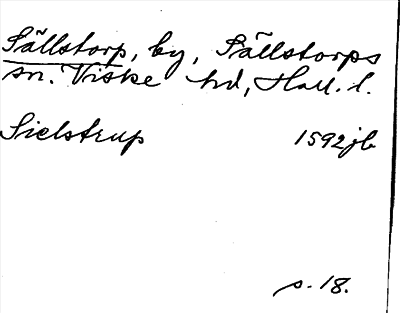 Sällstorp, by, Sällstorps
sn. Viske hd, Hall. l.
Sielstrup 1592 jb
s. 18.